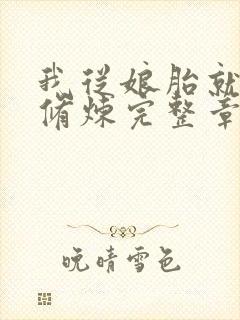 我从娘胎就
脩炼完整章
晚晴雪色